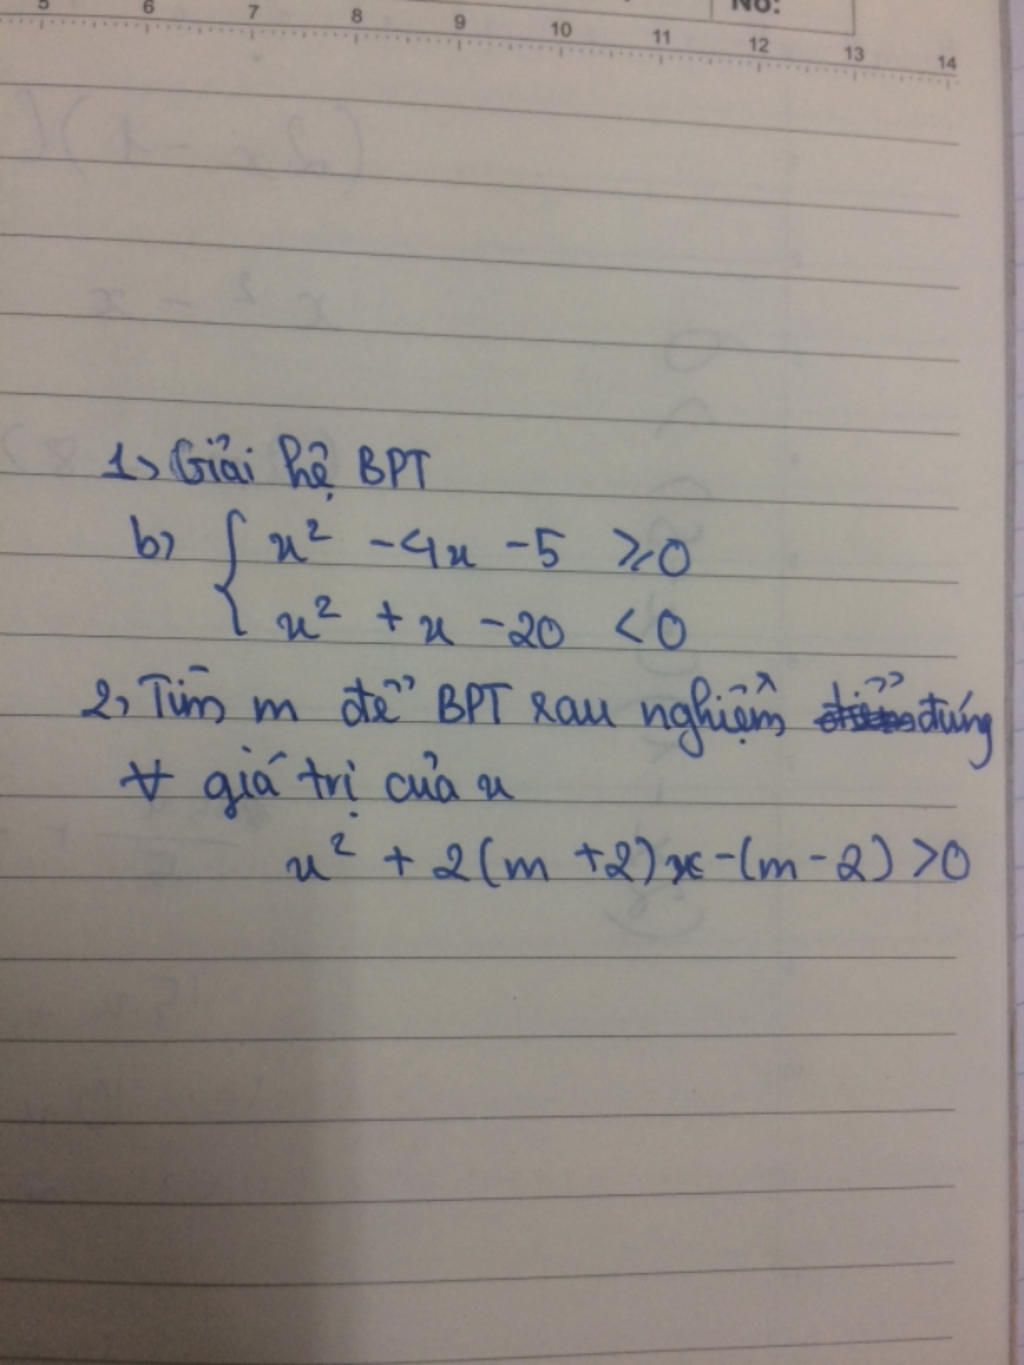 5 6 7 8 9 10 11 12 13 14
No:
1, Giải hệ BPT
b, { x² - 4x - 5 ≥ 0
x² + x - 20 < 0
2, Tìm m để BPT sau nghiệm đúng
∀ giá trị của x
x² + 2(m + 2)x - (m - 2) > 0